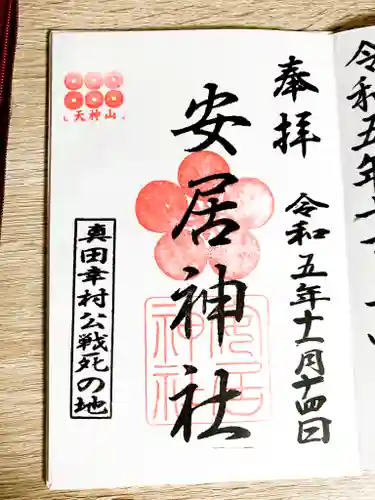 奉拝
令和五年十一月十四日
安居神社
安居神社
天神山
真田幸村公戦死の地
令和五年十